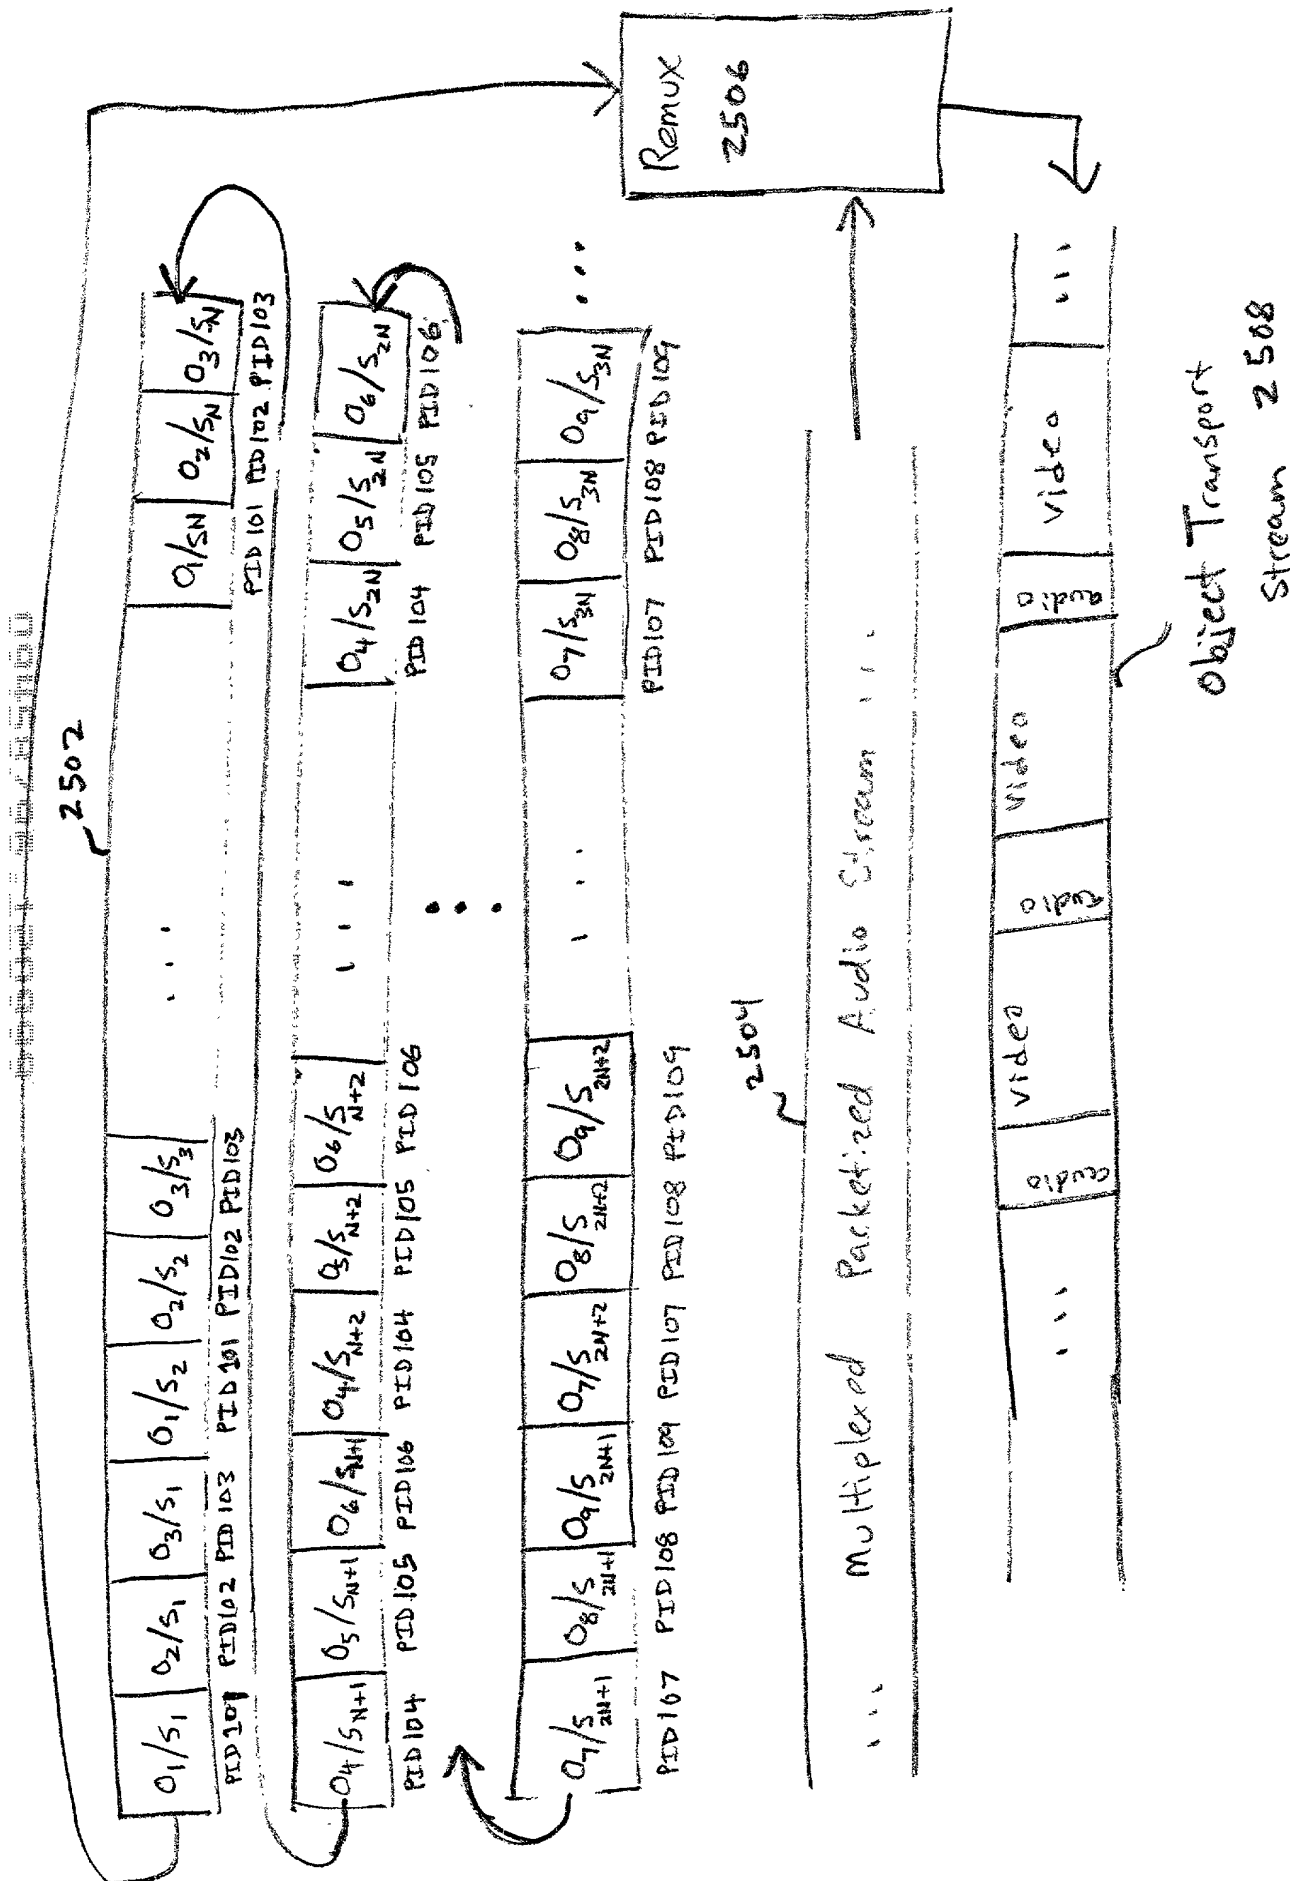 2502
O1/S1 O2/S1 O3/S1 O1/S2 O2/S2 O3/S3 ... O1/SN O2/SN O3/SN
PID101 PID102 PID103 PID101 PID102 PID103 PID101 PID102 PID103
O4/SN+1 O5/SN+1 O6/SN+1 O4/SN+2 O5/SN+2 O6/SN+2 ... O4/S2N O5/S2N O6/S2N
PID104 PID105 PID106 PID104 PID105 PID106 PID104 PID105 PID106
...
O7/S2N+1 O8/S2N+1 O9/S2N+1 O7/S2N+2 O8/S2N+2 O9/S2N+2 ... O7/S3N O8/S3N O9/S3N ...
PID107 PID108 PID109 PID107 PID108 PID109 PID107 PID108 PID109
Remux
2506
2504
... Multiplexed Packetized Audio Stream ...
... audio Video audio Video audio Video ...
Object Transport
Stream 2508